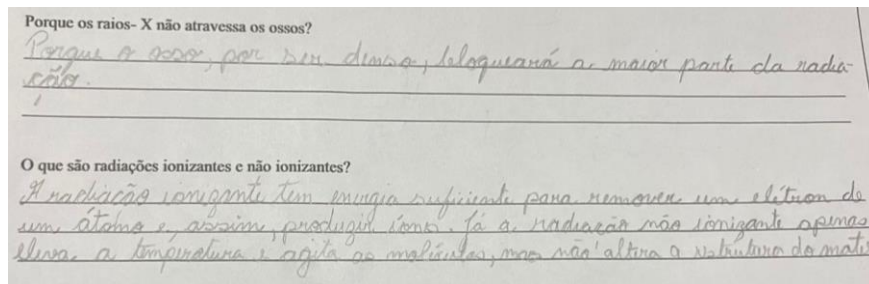 Porque os raios- X não atravessa os ossos?
Porque o osso, por ser denso, bloqueará a maior parte da radia-
ção.
O que são radiações ionizantes e não ionizantes?
A radiação ionizante tem energia suficiente para remover um elétron de
um átomo e, assim, produzir íons. Já a radiação não ionizante apenas
eleva a temperatura e agita as moléculas, mas não altera a estrutura do mate